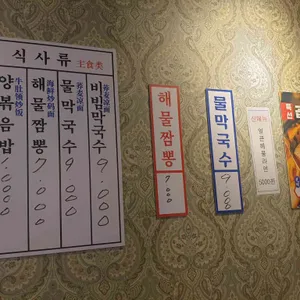 식사류 主食类
양볶음밥
牛肚领炒饭
해물짬뽕
海鲜炒码面
7.000
물막국수
荞麦凉面
9.000
비빔막국수
荞麦凉面
9.000
해물짬뽕
7.000
물막국수
얼큰해물라면
5000원
특선